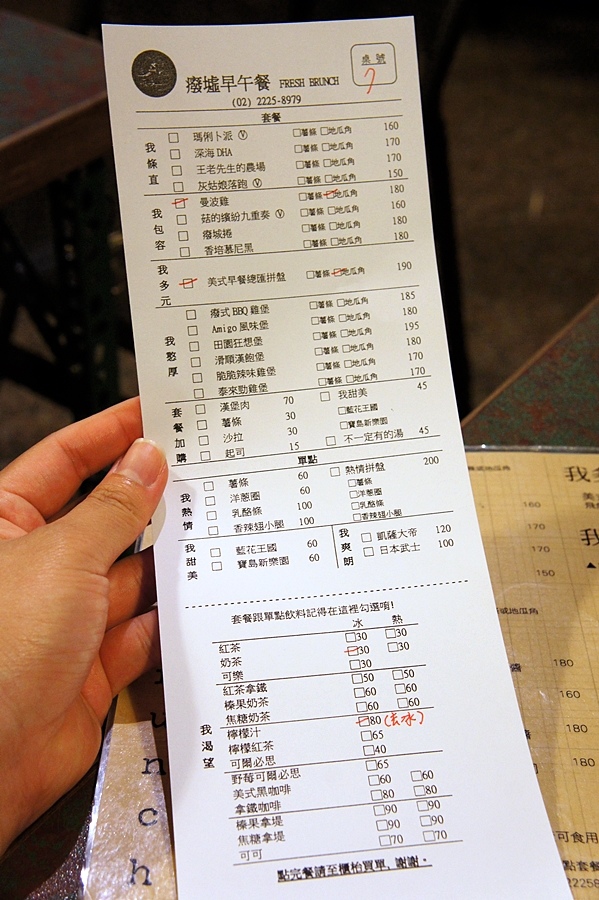 廢墟早午餐 FRESH BRUNCH
桌號
7
(02) 2225-8979
套餐
我條直
□ 瑪俐卜派 Ⓥ □薯條 □地瓜角 160
□ 深海DHA □薯條 □地瓜角 170
□ 王老先生的農場 □薯條 □地瓜角 170
□ 灰姑娘落跑 Ⓥ □薯條 □地瓜角 150
我包容
☑ 曼波雞 □薯條 ☑地瓜角 180
□ 菇的繽紛九重奏 Ⓥ □薯條 □地瓜角 160
□ 廢城捲 □薯條 □地瓜角 180
□ 香培慕尼黑 □薯條 □地瓜角 180
我多元
☑ 美式早餐總匯拼盤 □薯條 ☑地瓜角 190
我憨厚
□ 廢式BBQ雞堡 □薯條 □地瓜角 185
□ Amigo風味堡 □薯條 □地瓜角 180
□ 田園狂想堡 □薯條 □地瓜角 195
□ 滑順漢飽堡 □薯條 □地瓜角 180
□ 脆脆辣味雞堡 □薯條 □地瓜角 170
□ 泰來勁雞堡 □薯條 □地瓜角 170
套餐加購
□ 漢堡肉 70 □ 我甜美 45
□ 薯條 30 □藍花王國
□ 沙拉 30 □寶島新樂園
□ 起司 15 □ 不一定有的湯 45
單點
我熱情
□ 薯條 60 □ 熱情拼盤 200
□ 洋蔥圈 60 □薯條
□ 乳酪條 100 □洋蔥圈
□ 香辣翅小腿 100 □乳酪條
□香辣翅小腿
我甜美
□ 藍花王國 60
□ 寶島新樂園 60
我爽朗
□ 凱薩大帝 120
□ 日本武士 100
套餐跟單點飲料記得在這裡勾選唷!
冰 熱
我渴望
紅茶 □30 □30
奶茶 ☑30 □30
可樂 □30
紅茶拿鐵 □50 □50
榛果奶茶 □60 □60
焦糖奶茶 □60 □60
檸檬汁 ☑80 (去冰)
檸檬紅茶 □65
可爾必思 □40
野莓可爾必思 □65
美式黑咖啡 □60 □60
拿鐵咖啡 □80 □80
榛果拿堤 □90 □90
焦糖拿堤 □90 □90
可可 □70 □70
點完餐請至櫃枱買單,謝謝。
我多
160
170
150
180
180
180
可食用
點套餐
22258
n
c
h